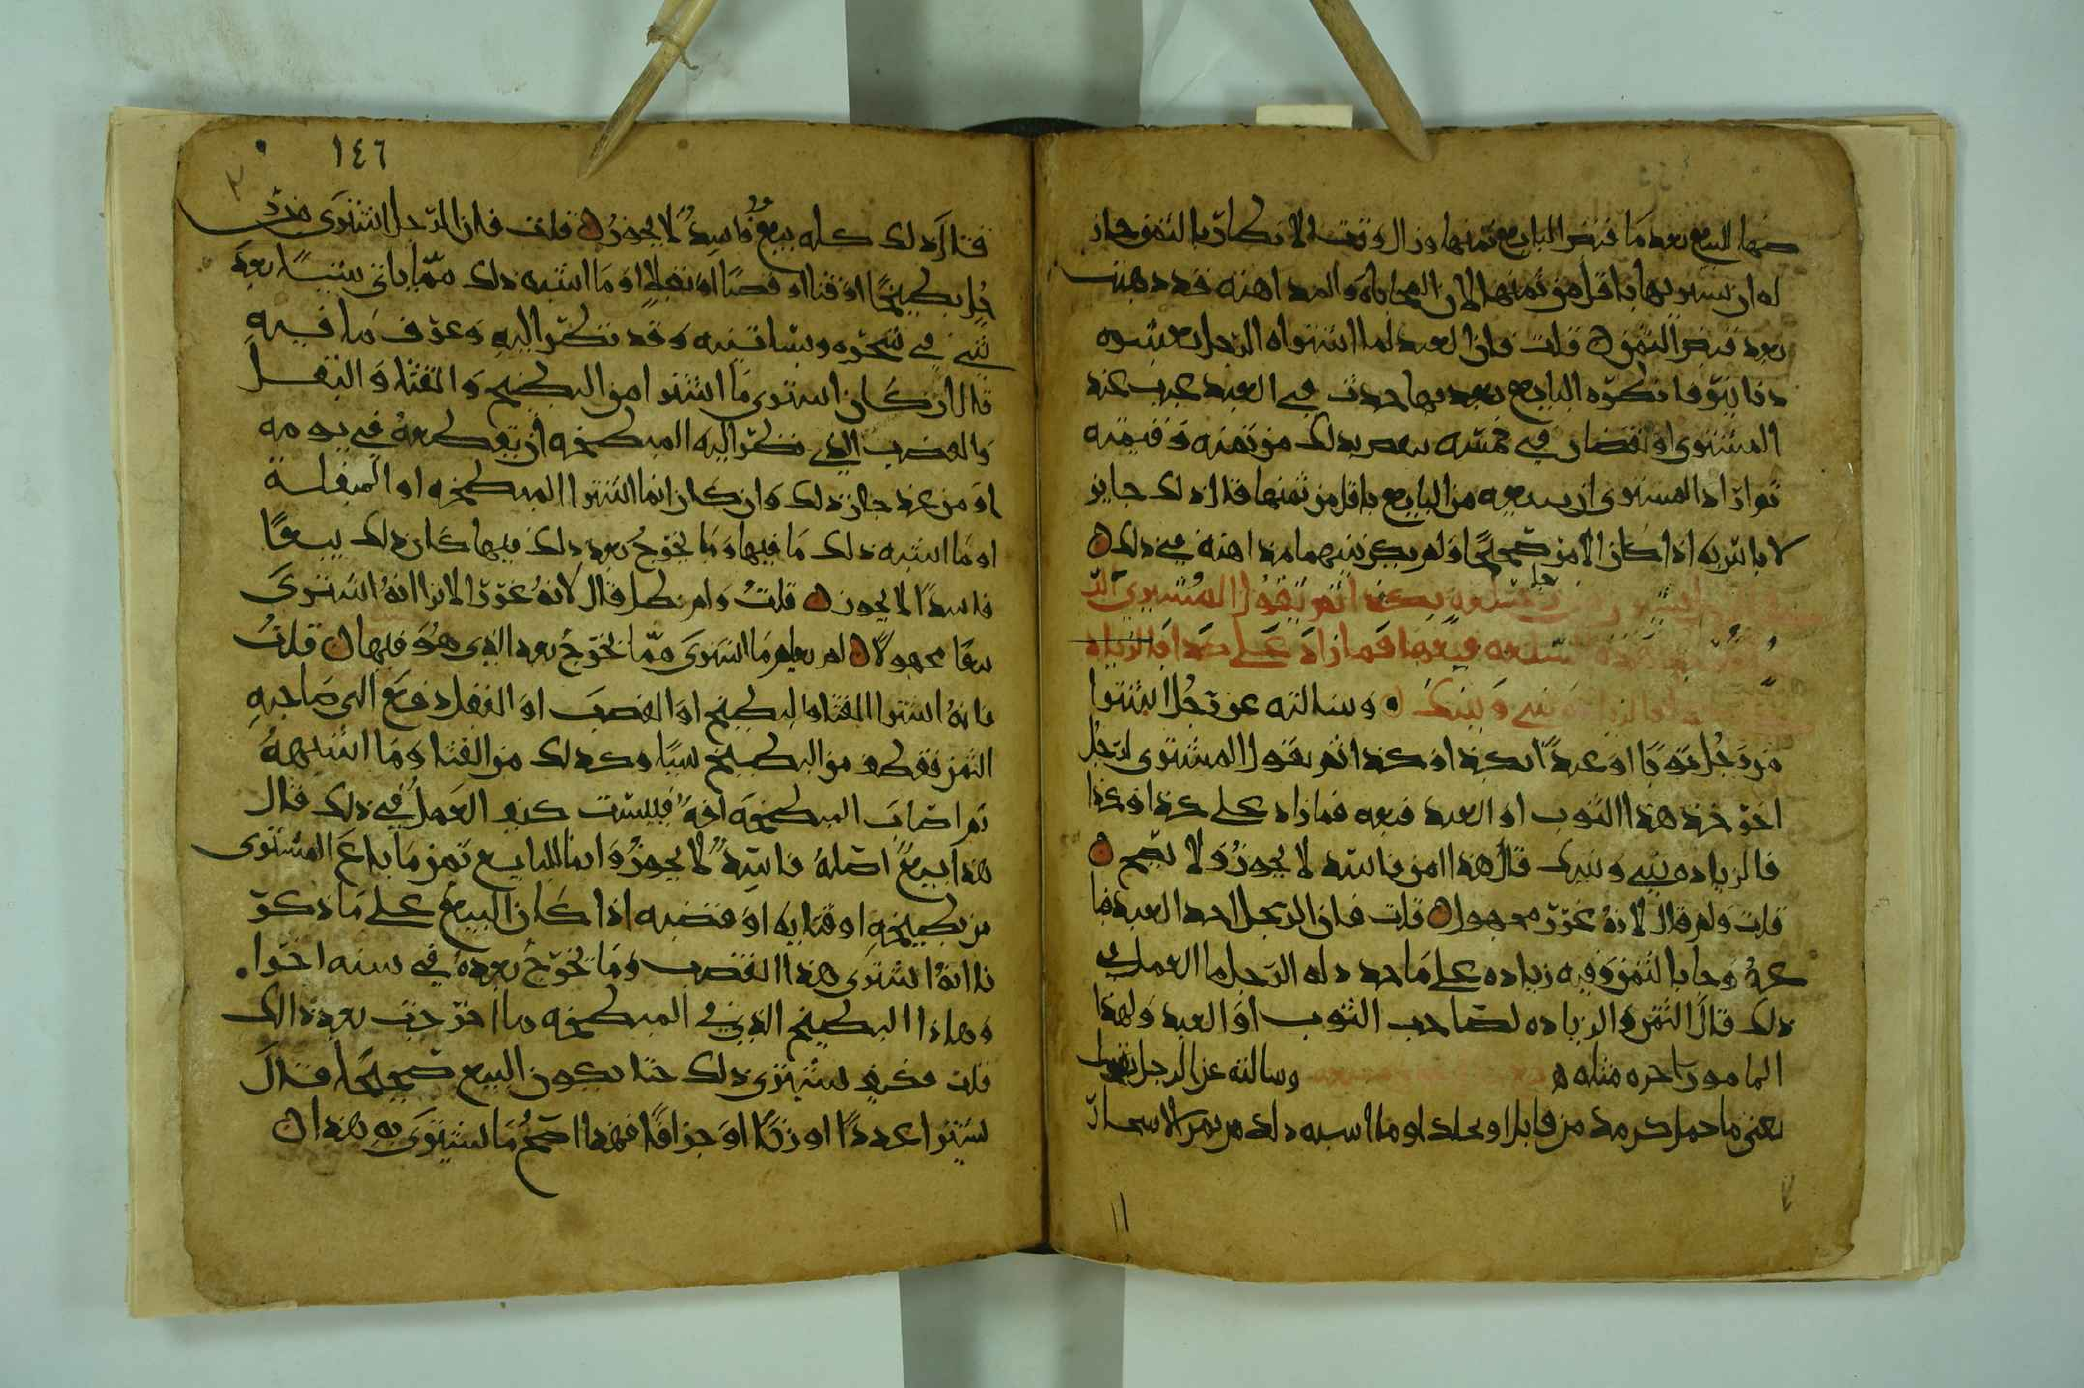 صها البيع بعد ما قبض البايع ثمنها وزال وقت الانكار بالثمن جاز
له ان يشتريها باقل من ثمنها لان المحاباه والمداهنه قد ذهبت
بعد قبض الثمن قلت فان العبد لما اشتراه الرجل بعشره
دنانير فانكره البايع بعد بها حدث في العبد عيب عند
المشتري او نقصان في نفسه بعض بذلك من ثمنه وقيمته
ثم اراد المشتري ان يبيعه من البايع باقل من ثمنها قال ذلك جايز
لا باس به اذا كان الامر صحيحا ولم يكن بينهما مداهنه في ذلك
سلعه بكذا ثم يقول المشتري
سلعه فبعها فما زاد على كذا فالزياده
بيني وبينك وسالته عن رجل اشترا
من رجل ثوبا او عبدا بكذا وكذا ثم يقول المشتري لرجل
اخر خذ هذا الثوب او العبد فبعه فما زاد على كذا وكذا
فالزياده بيني وبينك قال هذا امر فاسد لا يجوز ولا يصح
قلت ولم قال لانه غرر مجهول قلت فان الرجل اخذ العبد فبا
عه وجا بالثمن وفيه زياده على ما حد له الرجل ما العمل في
ذلك قال الثمن والزياده لصاحب الثوب او العبد ولهذا
المامور اجره مثله وسالته عن الرجل يشتري
يعني ما حمل كرمه من قابل او نخله او ما اشبه ذلك من ثمر الاشجار
١٤٦
قال ذلك كله بيع فاسد لا يجوز قلت فان الرجل اشترى من ر
جل بطيخا او قثا او قصبا او بقلا او ما اشبه ذلك مما ياتي شيئا بعد
شي في شجره وبساتينه وقد نظر اليه وعرف ما فيه
قال ان كان اشترى ما اشترا من البطيخ والقثا والبقل
والقصب الذي نظر اليه المبطخه ان يقطعه في يومه
او من غد جاز ذلك وان كان انما اشترا المبطخه او المبقله
او ما اشبه ذلك ما فيها وما يخرج بعد ذلك فيها كان ذلك بيعا
فاسدا لا يجوز قلت ولم بطل قال لانه غرر الا ترا انه اشترى
بيعا مجهولا لم يعلم ما اشترى مما يخرج بعد الذي هو فيها قلت
فانه اشترا القثا والبطيخ او القصب او البقل دفع الى صاحبه
الثمن فقطف من البطيخ شيا وكذلك من القثا وما اشبهه
ثم اصاب المبطخه افه فيبست كيف العمل في ذلك قال
هذا بيع اصله فاسد لا يجوز وانما للبايع ثمن ما باع المشتري
من بطيخه او قثايه او قضبه اذا كان البيع على ما ذكر
نا انه اشترى هذا القصب وما يخرج بعده في سنه اخرا
وهاذا البطيخ الذي في المبطخه وما اخرجت بعد ذالك
قلت فكيف يشتري ذلك حتا يكون البيع صحيحا قال
يشترا عددا او وزنا او جزافا فهذا اصح ما يشترى به هذا